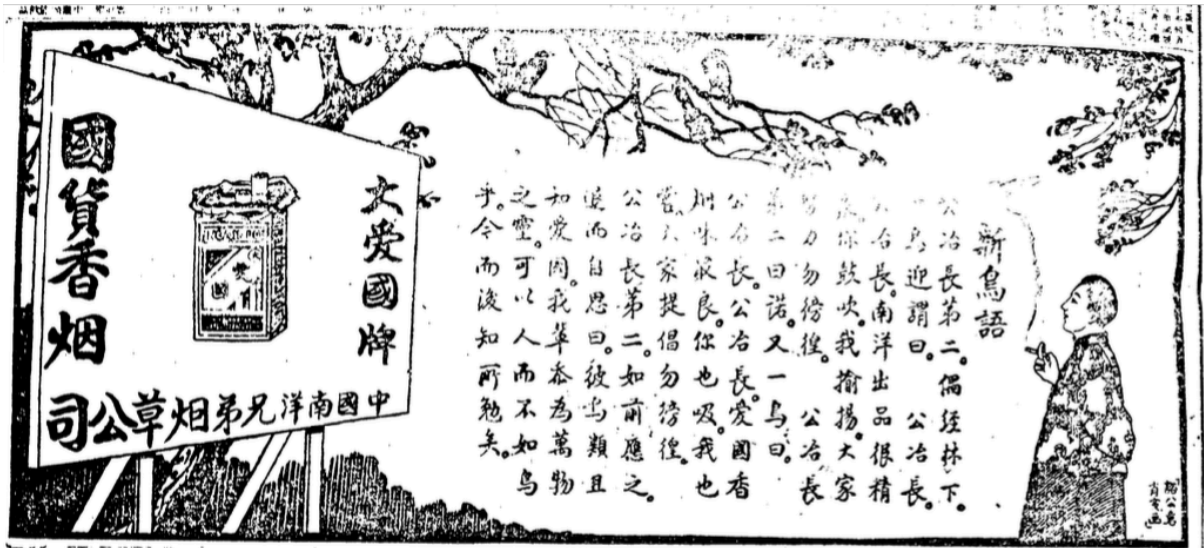 新鳥語
公冶長第二。偶經林下。
一鳥迎謂曰。公冶長。
公冶長。南洋出品很精
良。你鼓吹。我揄揚。大家
努力勿徬徨。公冶長
第二曰諾。又一鳥曰。
公冶長。公冶長。愛國香
烟味最良。你也吸。我也
嘗。大家提倡勿徬徨。
公冶長第二。如前應之。
退而自思曰。彼鳥類且
知愛國。我輩忝為萬物
之靈。可以人而不如鳥
乎。今而後知所勉矣。
大愛國牌
國貨香烟
中國南洋兄弟烟草公司